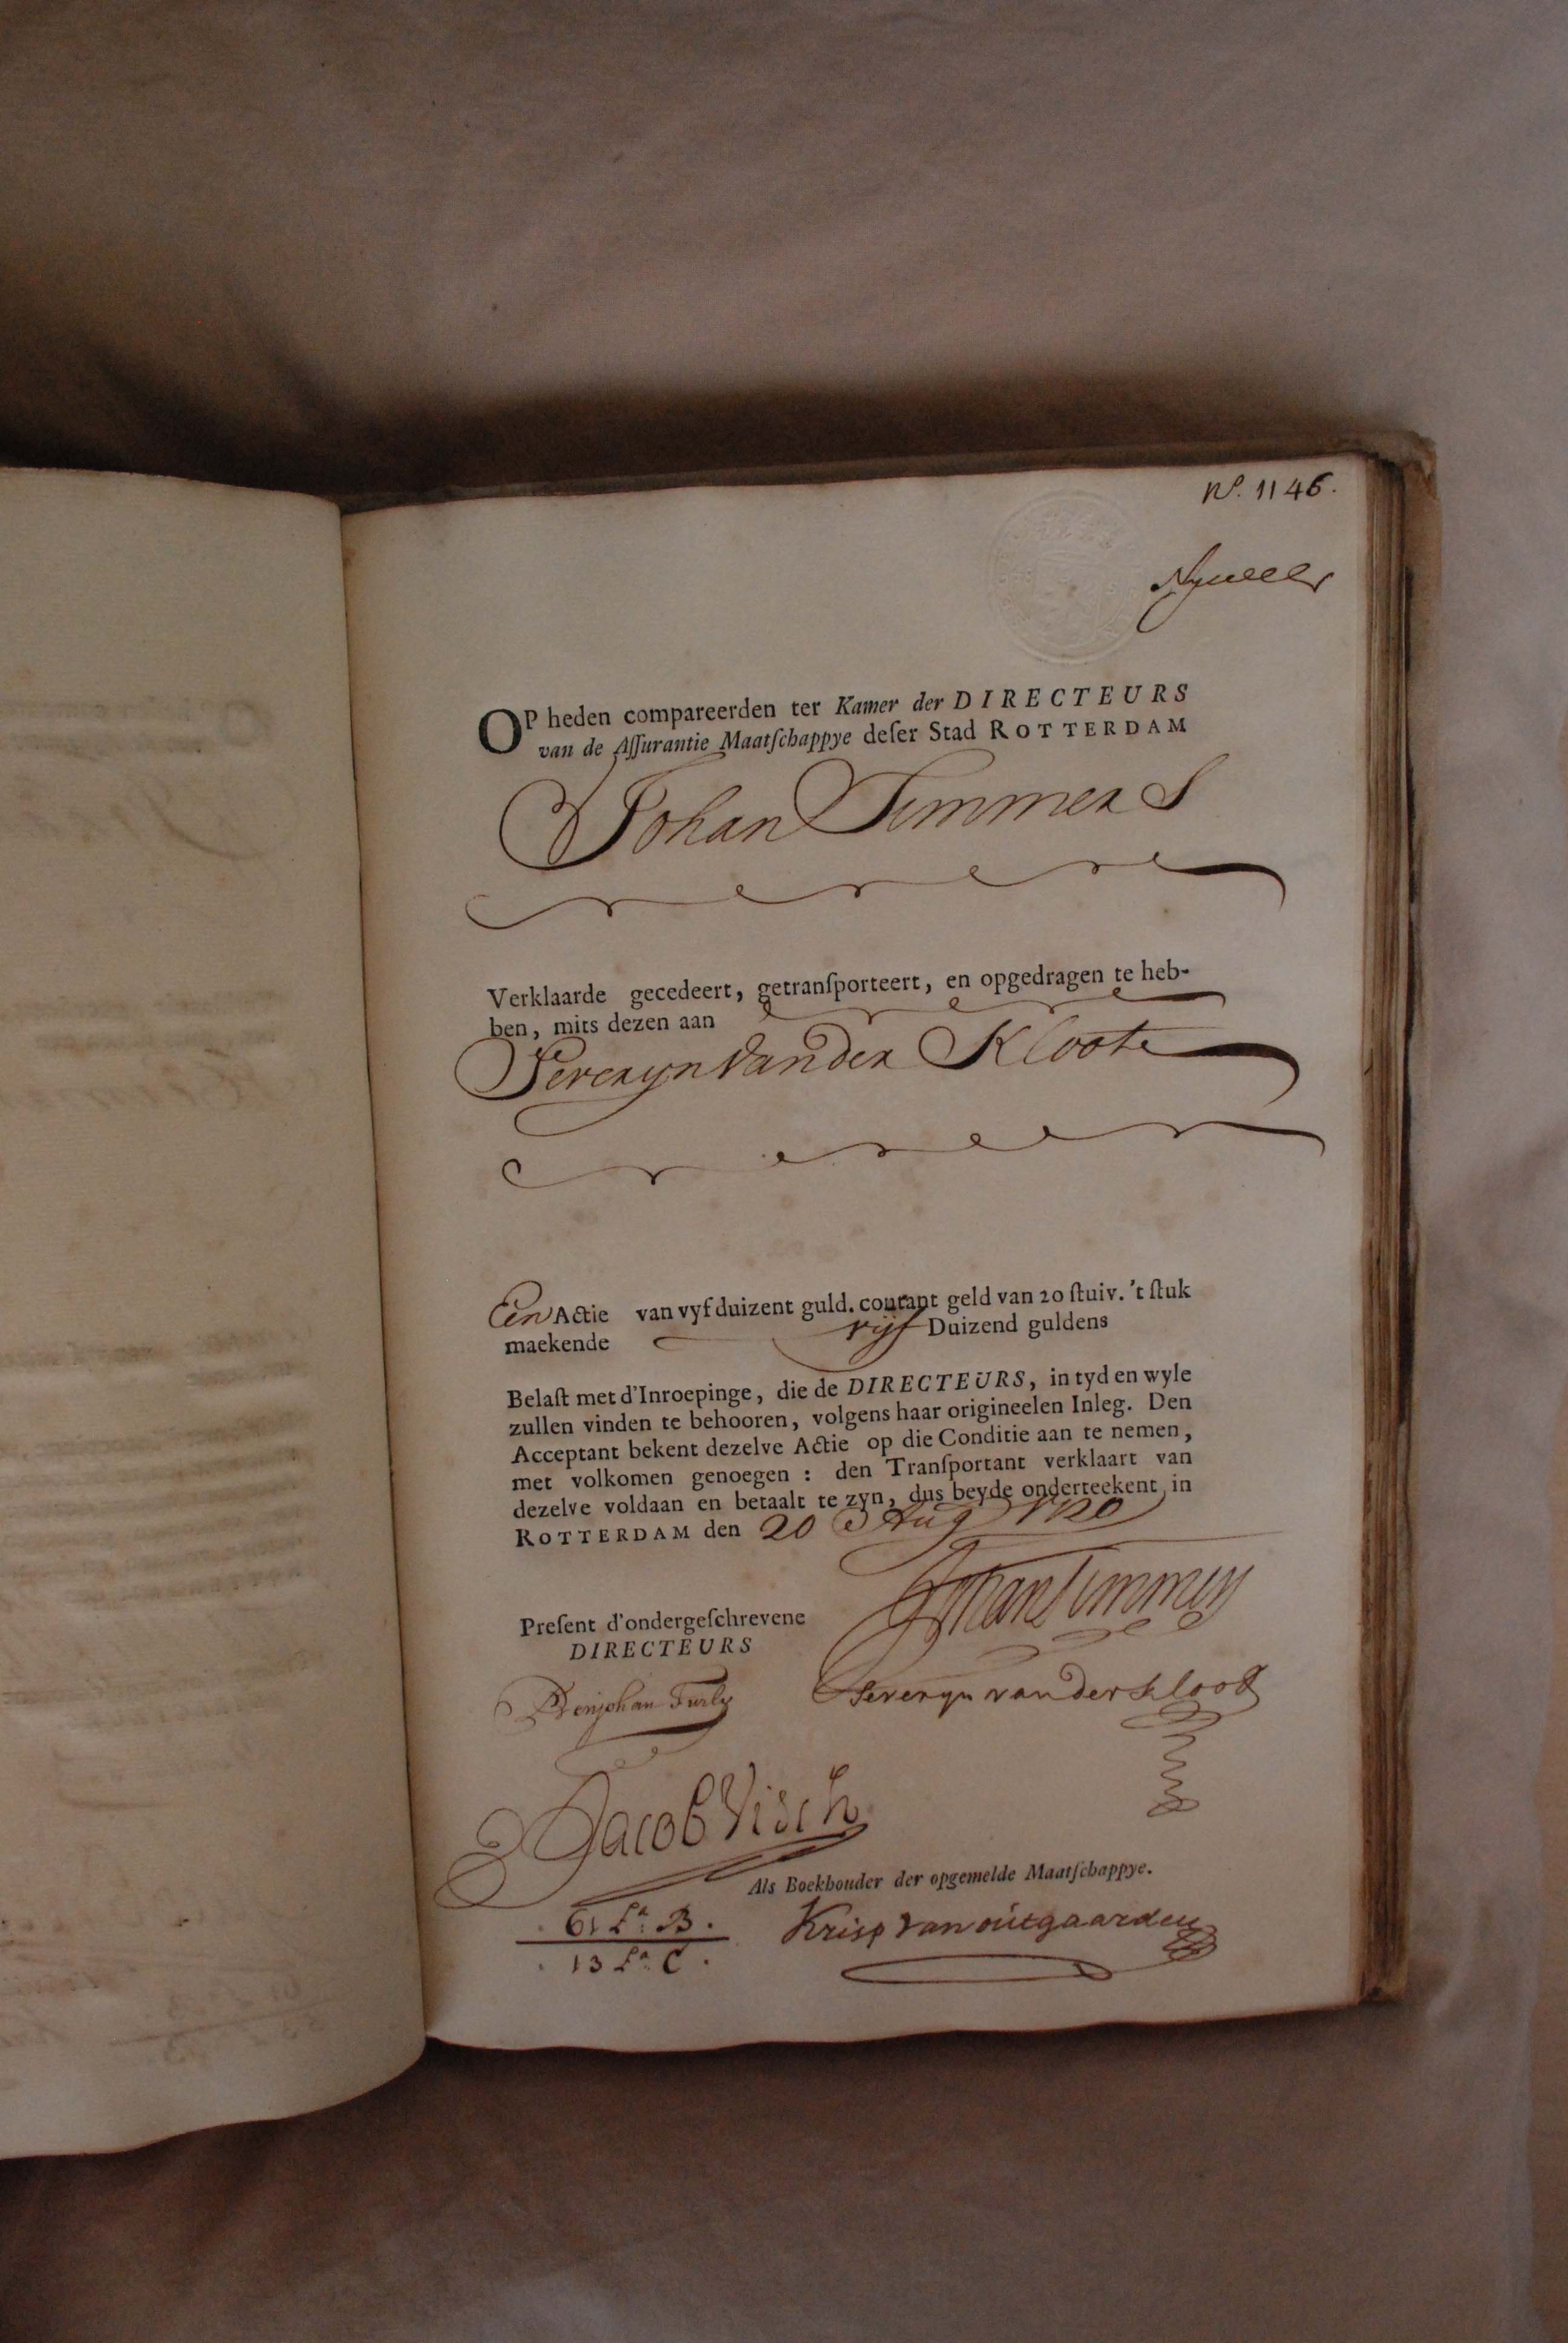 No. 1146.
OP heden compareerden ter Kamer der DIRECTEURS
van de Aſſurantie Maatſchappye deſer Stad ROTTERDAM
Johan Timmers
Verklaarde gecedeert, getranſporteert, en opgedragen te heb-
ben, mits dezen aan
Severyn van der Kloote
Een Actie van vyf duizent guld. courant geld van 20 ſtuiv. 't ſtuk
maekende vijf Duizend guldens
Belaſt met d'Inroepinge, die de DIRECTEURS, in tyd en wyle
zullen vinden te behooren, volgens haar origineelen Inleg. Den
Acceptant bekent dezelve Actie op die Conditie aan te nemen,
met volkomen genoegen : den Tranſportant verklaart van
dezelve voldaan en betaalt te zyn, dus beyde onderteekent in
ROTTERDAM den 20 Aug 1720
Johan Timmers
Preſent d'ondergeſchrevene
DIRECTEURS
Benjohan Furly
Severyn van der kloot
Jacob Visch
Als Boekhouder der opgemelde Maatſchappye.
61 La: B.
13 La: C.
Krisp van outgaarden